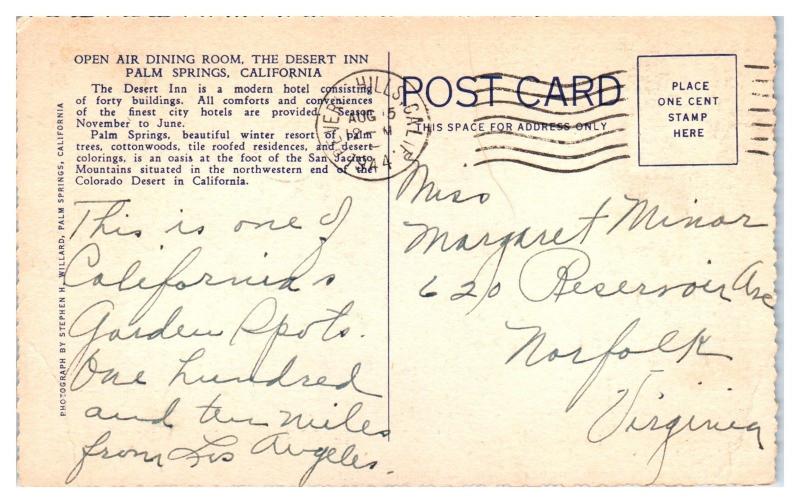 OPEN AIR DINING ROOM, THE DESERT INN
PALM SPRINGS, CALIFORNIA
The Desert Inn is a modern hotel consisting
of forty buildings. All comforts and conveniences
of the finest city hotels are provided. Season
November to June.
Palm Springs, beautiful winter resort of palm
trees, cottonwoods, tile roofed residences, and desert
colorings, is an oasis at the foot of the San Jacinto
Mountains situated in the northwestern end of the
Colorado Desert in California.
PHOTOGRAPH BY STEPHEN H. WILLARD, PALM SPRINGS, CALIFORNIA
This is one of
California's
Garden Spots.
One hundred
and ten miles
from Los Angeles.
BEVERLY HILLS, CALIF.
AUG 5
M
1944
POST CARD
THIS SPACE FOR ADDRESS ONLY
PLACE
ONE CENT
STAMP
HERE
Miss
Margaret Minor
620 Reservoir Ave
Norfolk
Virginia